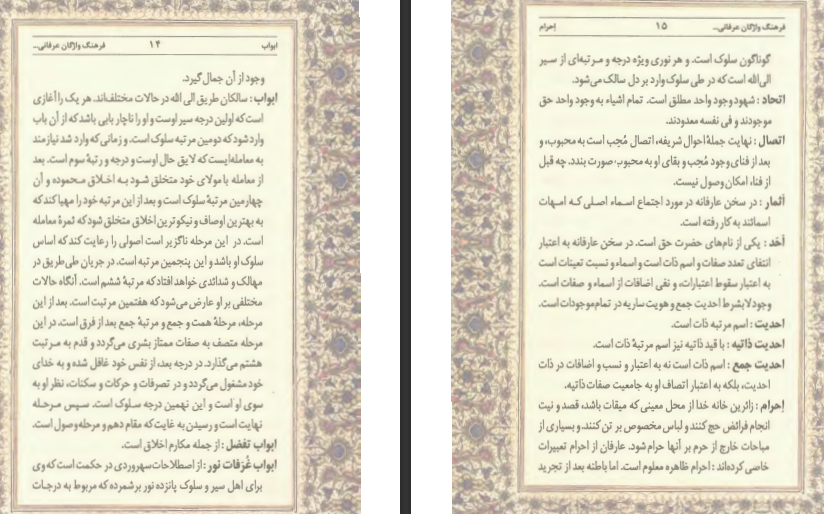 ابواب ۱۴ فرهنگ واژگان عرفانی...
وجود از آن جمال گیرد.
ابواب : سالکان طریق الی الله در حالات مختلف‌اند. هر یک را آغازی
است که اولین درجه سیر اوست و او را ناچار بابی باشد که از آن باب
وارد شود که دومین مرتبه سلوک است. و زمانی که وارد شد نیازمند
به معامله‌ایست که لایق حال اوست و درجه و رتبهٔ سوم است. بعد
از معامله با مولای خود متخلق شود به اخلاق محموده و آن
چهارمین مرتبهٔ سلوک است و بعد از این مرتبه خود را مهیا کند که
به بهترین اوصاف و نیکوترین اخلاق متخلق شود که ثمرهٔ معامله
است. در این مرحله ناگزیر است اصولی را رعایت کند که اساس
سلوک او باشد و این پنجمین مرتبه است. در جریان طی طریق در
مهالک و شدائدی خواهد افتاد که مرتبهٔ ششم است. آنگاه حالات
مختلفی بر او عارض می‌شود که هفتمین مرتبت است. بعد از این
مرحله، مرحلهٔ همت و جمع و مرتبهٔ جمع بعد از فرق است. در این
مرحله متصف به صفات ممتاز بشری می‌گردد و قدم به مرتبت
هشتم می‌گذارد. در درجه بعد، از نفس خود غافل شده و به خدای
خود مشغول می‌گردد و در تصرفات و حرکات و سکنات، نظر او به
سوی او است و این نهمین درجه سلوک است. سپس مرحله
نهایت است و رسیدن به غایت که مقام دهم و مرحله وصول است.
ابواب تفضل : از جمله مکارم اخلاق است.
ابواب غُرَفات نور : از اصطلاحات سهروردی در حکمت است که وی
برای اهل سیر و سلوک پانزده نور برشمرده که مربوط به درجات
فرهنگ واژگان عرفانی... ۱۵ اِحرام
گوناگون سلوک است. و هر نوری ویژه درجه و مرتبه‌ای از سیر
الی‌الله است که در طی سلوک وارد بر دل سالک می‌شود.
اتحاد : شهود وجود واحد مطلق است. تمام اشیاء به وجود واحد حق
موجودند و فی نفسه معدودند.
اتصال : نهایت جملهٔ احوال شریفه، اتصال مُحِب است به محبوب، و
بعد از فنای وجود مُحِب و بقای او به محبوب صورت بندد. چه قبل
از فنا، امکان وصول نیست.
أثمار : در سخن عارفانه در مورد اجتماع اسماء اصلی که امهات
اسمائند به کار رفته است.
أحَد : یکی از نام‌های حضرت حق است. در سخن عارفانه به اعتبار
انتفای تعدد صفات و اسم ذات است و اسماء و نسبت تعینات است
به اعتبار سقوط اعتبارات، و نفی اضافات از اسماء و صفات است.
وجود لابشرط احدیت جمع و هویت ساریه در تمام موجودات است.
احدیت : اسم مرتبه ذات است.
احدیت ذاتیه : با قید ذاتیه نیز اسم مرتبهٔ ذات است.
احدیت جمع : اسم ذات است نه به اعتبار و نسب و اضافات در ذات
احدیت، بلکه به اعتبار اتصاف او به جامعیت صفات ذاتیه.
اِحرام : زائرین خانه خدا از محل معینی که میقات باشد، قصد و نیت
انجام فرائض حج کنند و لباس مخصوص بر تن کنند. و بسیاری از
مباحات خارج از حرم بر آنها حرام شود. عارفان از احرام تعبیرات
خاصی کرده‌اند : احرام ظاهره معلوم است. اما باطنه بعد از تجرید